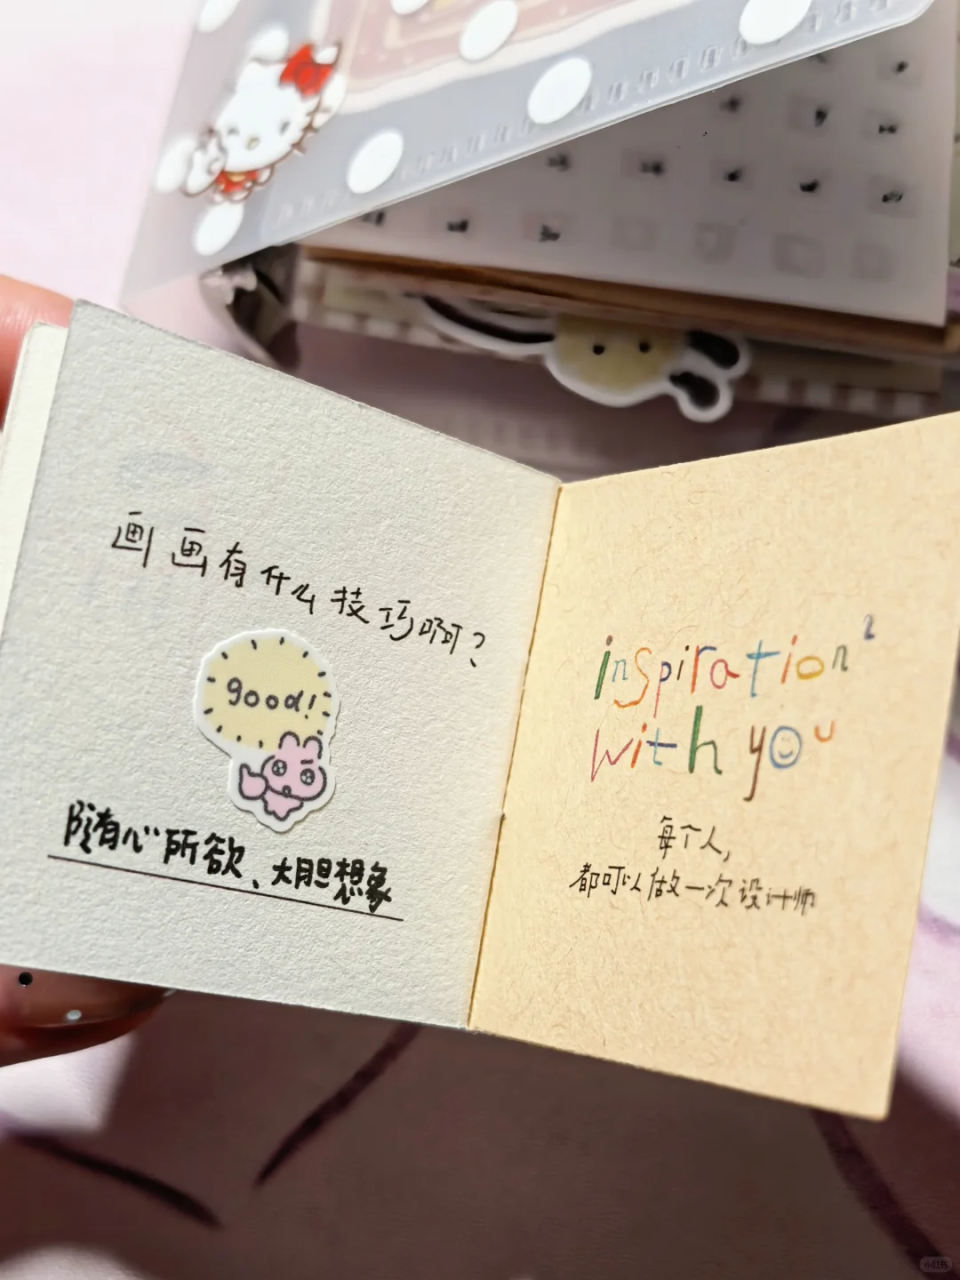 画画有什么技巧啊?
good!
随心所欲、大胆想象
inspiration²
with you
每个人,
都可以做一次设计师
小红书